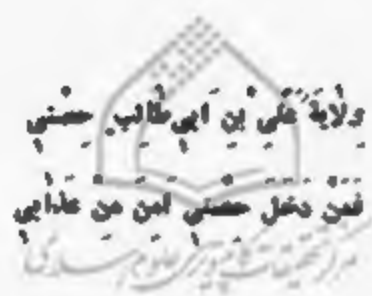 ولايَة عَلي بن اَبي‌طالب حصني
فمَن دَخلَ حصني اَمِنَ مِنْ عَذابي
مرکز تحقیقات کامپیوتری علوم اسلامی